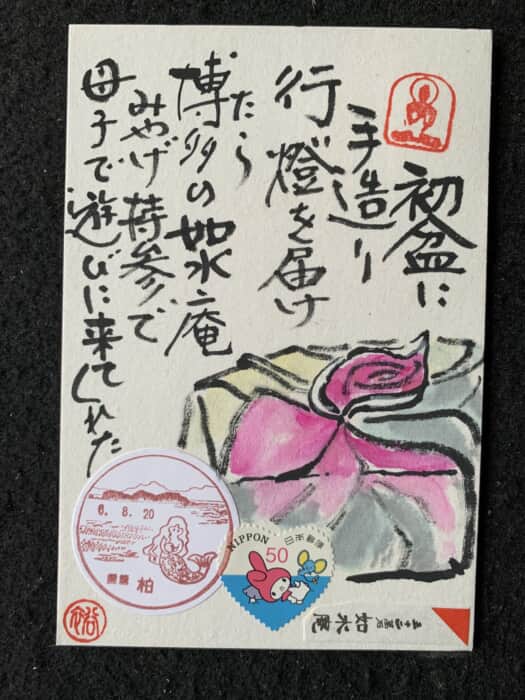 初盆に
手造り
行燈を届け
たら
博多の如水庵
みやげ持参で
母子で遊びに来てくれた
6.8.20
柏
NIPPON
日本郵便
50
如水庵